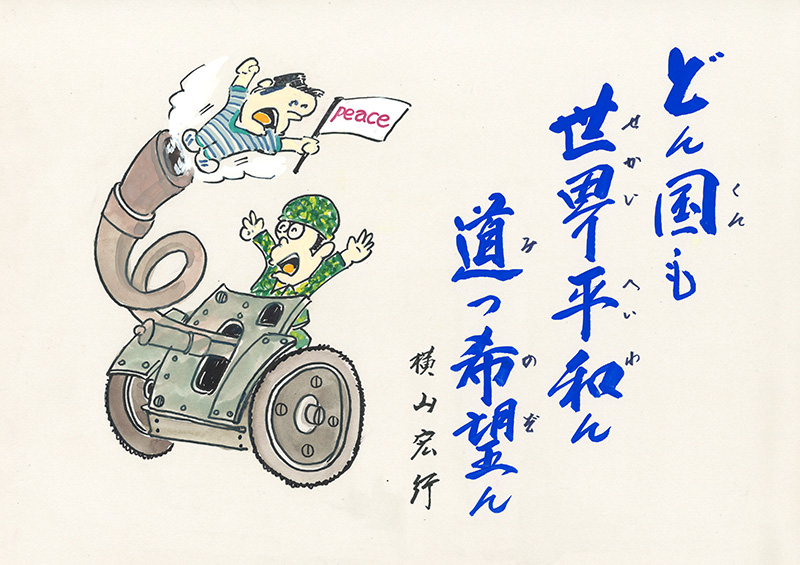 どん国も
くん
世界平和ん
せかい へいわ
道つ希望ん
み のぞ
横山宏行
peace